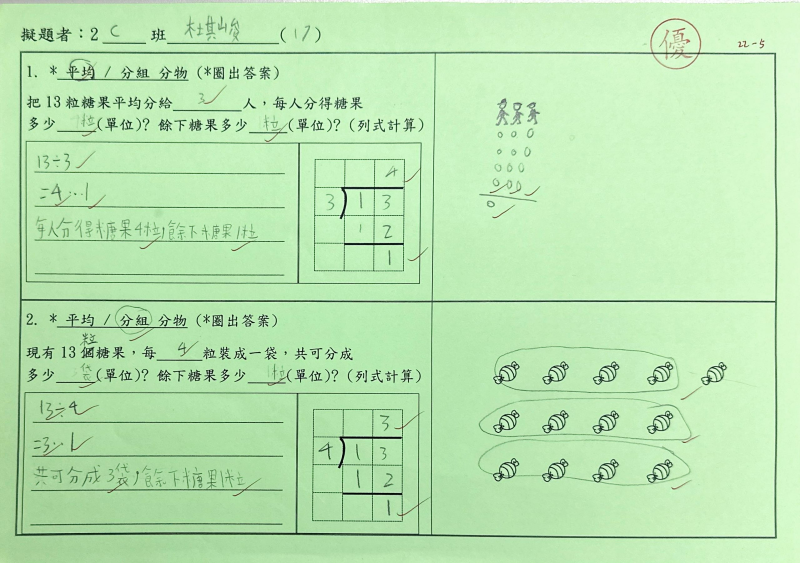 擬題者：2 C 班 杜祺峻 (17)
優
22-5
1. * 平均 / 分組 分物 (*圈出答案)
把 13 粒糖果平均分給 3 人，每人分得糖果
多少 粒 (單位)? 餘下糖果多少 粒 (單位)? (列式計算)
13÷3
=4…1
每人分得糖果4粒,餘下糖果1粒
4
3 1 3
1 2
1
2. * 平均 / 分組 分物 (*圈出答案)
粒
現有 13 個糖果，每 4 粒裝成一袋，共可分成
多少 袋 (單位)? 餘下糖果多少 粒 (單位)? (列式計算)
13÷4
=3…1
共可分成3袋,餘下糖果1粒
3
4 1 3
1 2
1